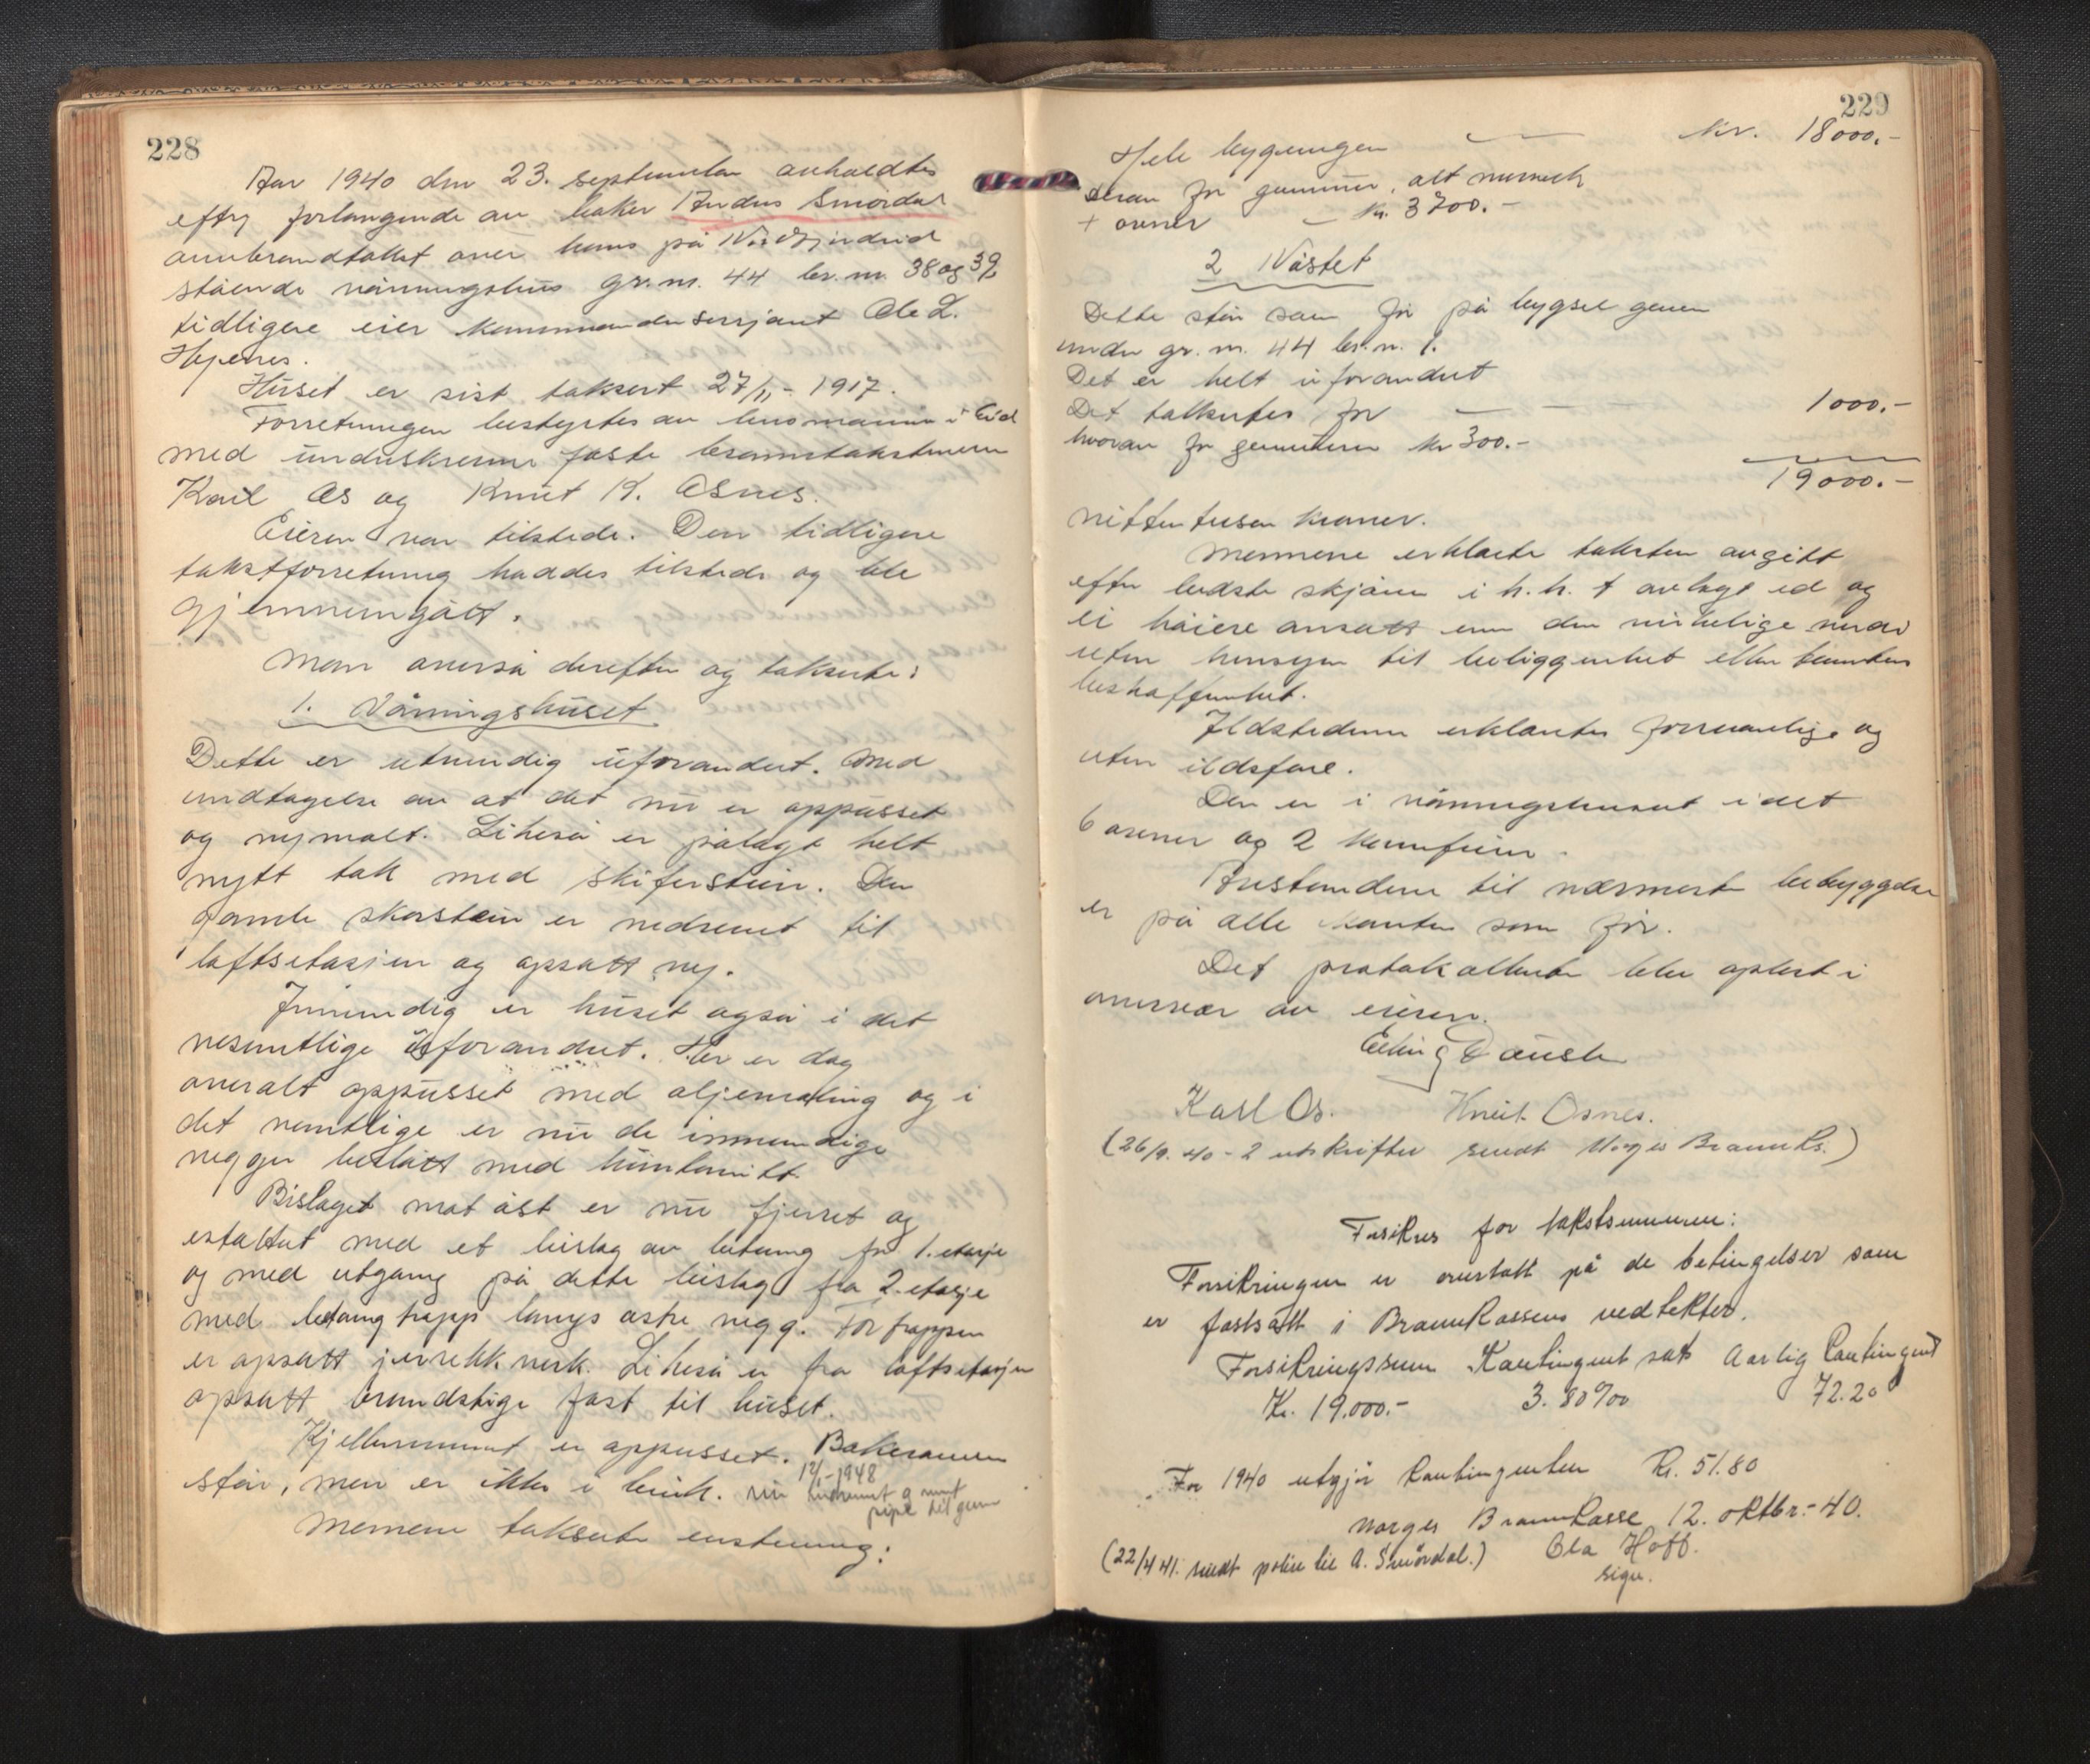 228
Aar 1940 den 23. september avholdtes
efter forlangende av baker Anders Smørdal
omebranntakst over hans på Nordfjordeid
stående våningshus gr.nr. 44 br.nr. 38 og 39
tidligere eier kommandersersjant Ole L.
Hjelles.
Huset er sist taksert 27/11 - 1917.
Forretningen bestyrtes av lensmannen i Eid
med underskrevne faste branntakstmenn
Karl Os og Knut K. Osnes.
Eieren var tilstede. Den tidligere
takstforretning haddes tilstede og ble
gjennemgått.
Man overså derefter og takserte:
1. Våningshuset
Dette er utvendig uforandret. Med
undtagelse av at det nu er oppusset
og nymalt. Likeså er pålagt helt
nytt tak med skiferstein. Den
gamle skorstein er nedrevet til
loftsetasjen og opsatt ny.
Innvendig er huset også i det
vesentlige uforandret. Her er dog
overalt oppusset med oljemaling og i
det ventlige er nu de innvendige
vegger beslått med huntonitt.
Bislaget mot øst er nu fjernet og
erstattet med et bislag av betong for 1. etasje
og med utgang på dette bislag fra 2. etasje
med betong trapp langs østre vegg. For trappen
er opsatt jernrekkverk. Likeså er fra loftsetasjen
opsatt brandstige fast til huset.
Kjellerrummet er oppusset. Bakerovnen
står, men er ikke i bruk. nu
12/1-1948
pipe til
Mennene takserte enstemmig:
229
Hele bygningen — Kr. 18000.-
Derav for grunnmur, alt murverk
+ ovner — Kr. 3700.-
2 Nåstet
Dette står som før på bygsel grunn
under gr.nr. 44 br.nr. 1.
Det er helt uforandret
Det takseres for — — 1000.-
hvorav for grunnmuren Kr 300.-
19000.-
nittentusen kroner.
Mennene erklærte taksten avgitt
efter bedste skjønn i h.h. t avlagt ed og
ei høiere ansatt enn den virkelige verdi
uten hensyn til beliggenhet eller tomtens
beskaffenhet.
Ildstedene erklærtes forsvarlige og
uten ildsfare.
Der er i våningshuset i alt
6 ovner og 2 komfurer.
Avstandene til nærmeste bebyggelse
er på alle kanter som før.
Det protokollerte blev oplest i
overvær av eieren.
Elling Dausle
Karl Os. Knut Osnes.
(26/9. 40 - 2 utskrifter sendt Norges Brannks.)
Forsikres for takstsummen:
Forsikringen er overtatt på de betingelser som
er fastsatt i Brannkassens vedtekter.
Forsikringssum Kontingent sats Aarlig Contingent
Kr. 19.000.- 3.80 ‰ 72.20
For 1940 utgjør kontingenten Kr. 51.80
Norges Brannkasse 12. oktbr.- 40.
(22/4 41. sendt police til A. Smørdal.) Ola Hoff.
sign.